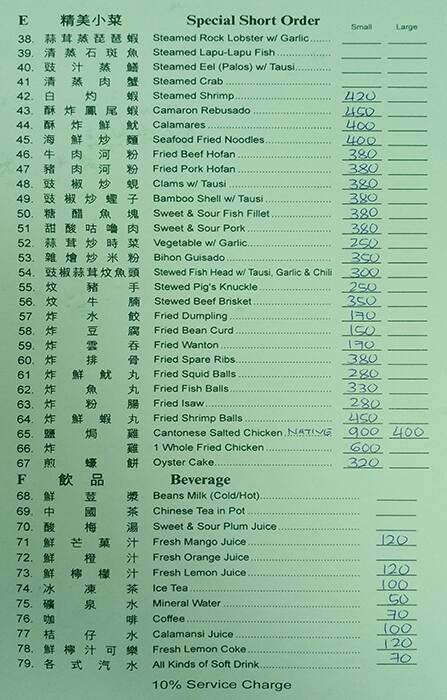 E 精美小菜 Special Short Order Small Large
38. 蒜茸蒸琵琶蝦 Steamed Rock Lobster w/ Garlic
39. 清蒸石斑魚 Steamed Lapu-Lapu Fish
40. 豉汁蒸鱔 Steamed Eel (Palos) w/ Tausi
41 清蒸肉蟹 Steamed Crab
42. 白灼蝦 Steamed Shrimp 420
43. 酥炸鳳尾蝦 Camaron Rebusado 450
44. 酥炸鮮魷 Calamares 400
45. 海鮮炒麵 Seafood Fried Noodles 400
46. 牛肉河粉 Fried Beef Hofan 380
47 豬肉河粉 Fried Pork Hofan 380
48. 豉椒炒蜆 Clams w/ Tausi 380
49. 豉椒炒蟶子 Bamboo Shell w/ Tausi 380
50. 糖醋魚塊 Sweet & Sour Fish Fillet 380
51 甜酸咕嚕肉 Sweet & Sour Pork 380
52. 蒜茸炒時菜 Vegetable w/ Garlic 250
53. 雜燴炒米粉 Bihon Guisado 350
54. 豉椒蒜茸炆魚頭 Stewed Fish Head w/ Tausi, Garlic & Chili 300
55. 炆豬手 Stewed Pig's Knuckle 250
56. 炆牛腩 Stewed Beef Brisket 350
57 炸水餃 Fried Dumpling 170
58. 炸豆腐 Fried Bean Curd 150
59. 炸雲吞 Fried Wanton 170
60. 炸排骨 Fried Spare Ribs 380
61 炸鮮魷丸 Fried Squid Balls 280
62. 炸魚丸 Fried Fish Balls 330
63. 炸粉腸 Fried Isaw 280
64. 炸鮮蝦丸 Fried Shrimp Balls 450
65. 鹽焗雞 Cantonese Salted Chicken NATIVE 900 400
66. 炸雞 1 Whole Fried Chicken 600
67 煎蠔餅 Oyster Cake 320
F 飲品 Beverage
68. 鮮荳漿 Beans Milk (Cold/Hot)
69. 中國茶 Chinese Tea in Pot
70. 酸梅湯 Sweet & Sour Plum Juice
71 鮮芒菓汁 Fresh Mango Juice 120
72. 鮮橙汁 Fresh Orange Juice
73. 鮮檸檬汁 Fresh Lemon Juice 120
74. 冰凍茶 Ice Tea 100
75. 礦泉水 Mineral Water 50
76. 咖啡 Coffee 70
77 桔仔水 Calamansi Juice 100
78. 鮮檸汁可樂 Fresh Lemon Coke 120
79. 各式汽水 All Kinds of Soft Drink 70
10% Service Charge